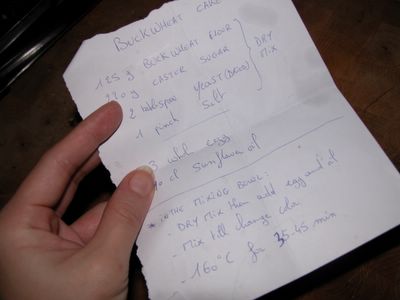 BUCKWHEAT CAKE
125 g BUCKWHEAT FLOUR
220 g CASTER SUGAR
2 tablespoon YEAST (DRIED)
1 pinch Salt
DRY
MIX
3 whl eggs
10 cl Sunflower oil
* in THE MIXING BOWL:
- DRY MIX then add egg and oil
- Mix till change color
- 160°C for 35-45 min